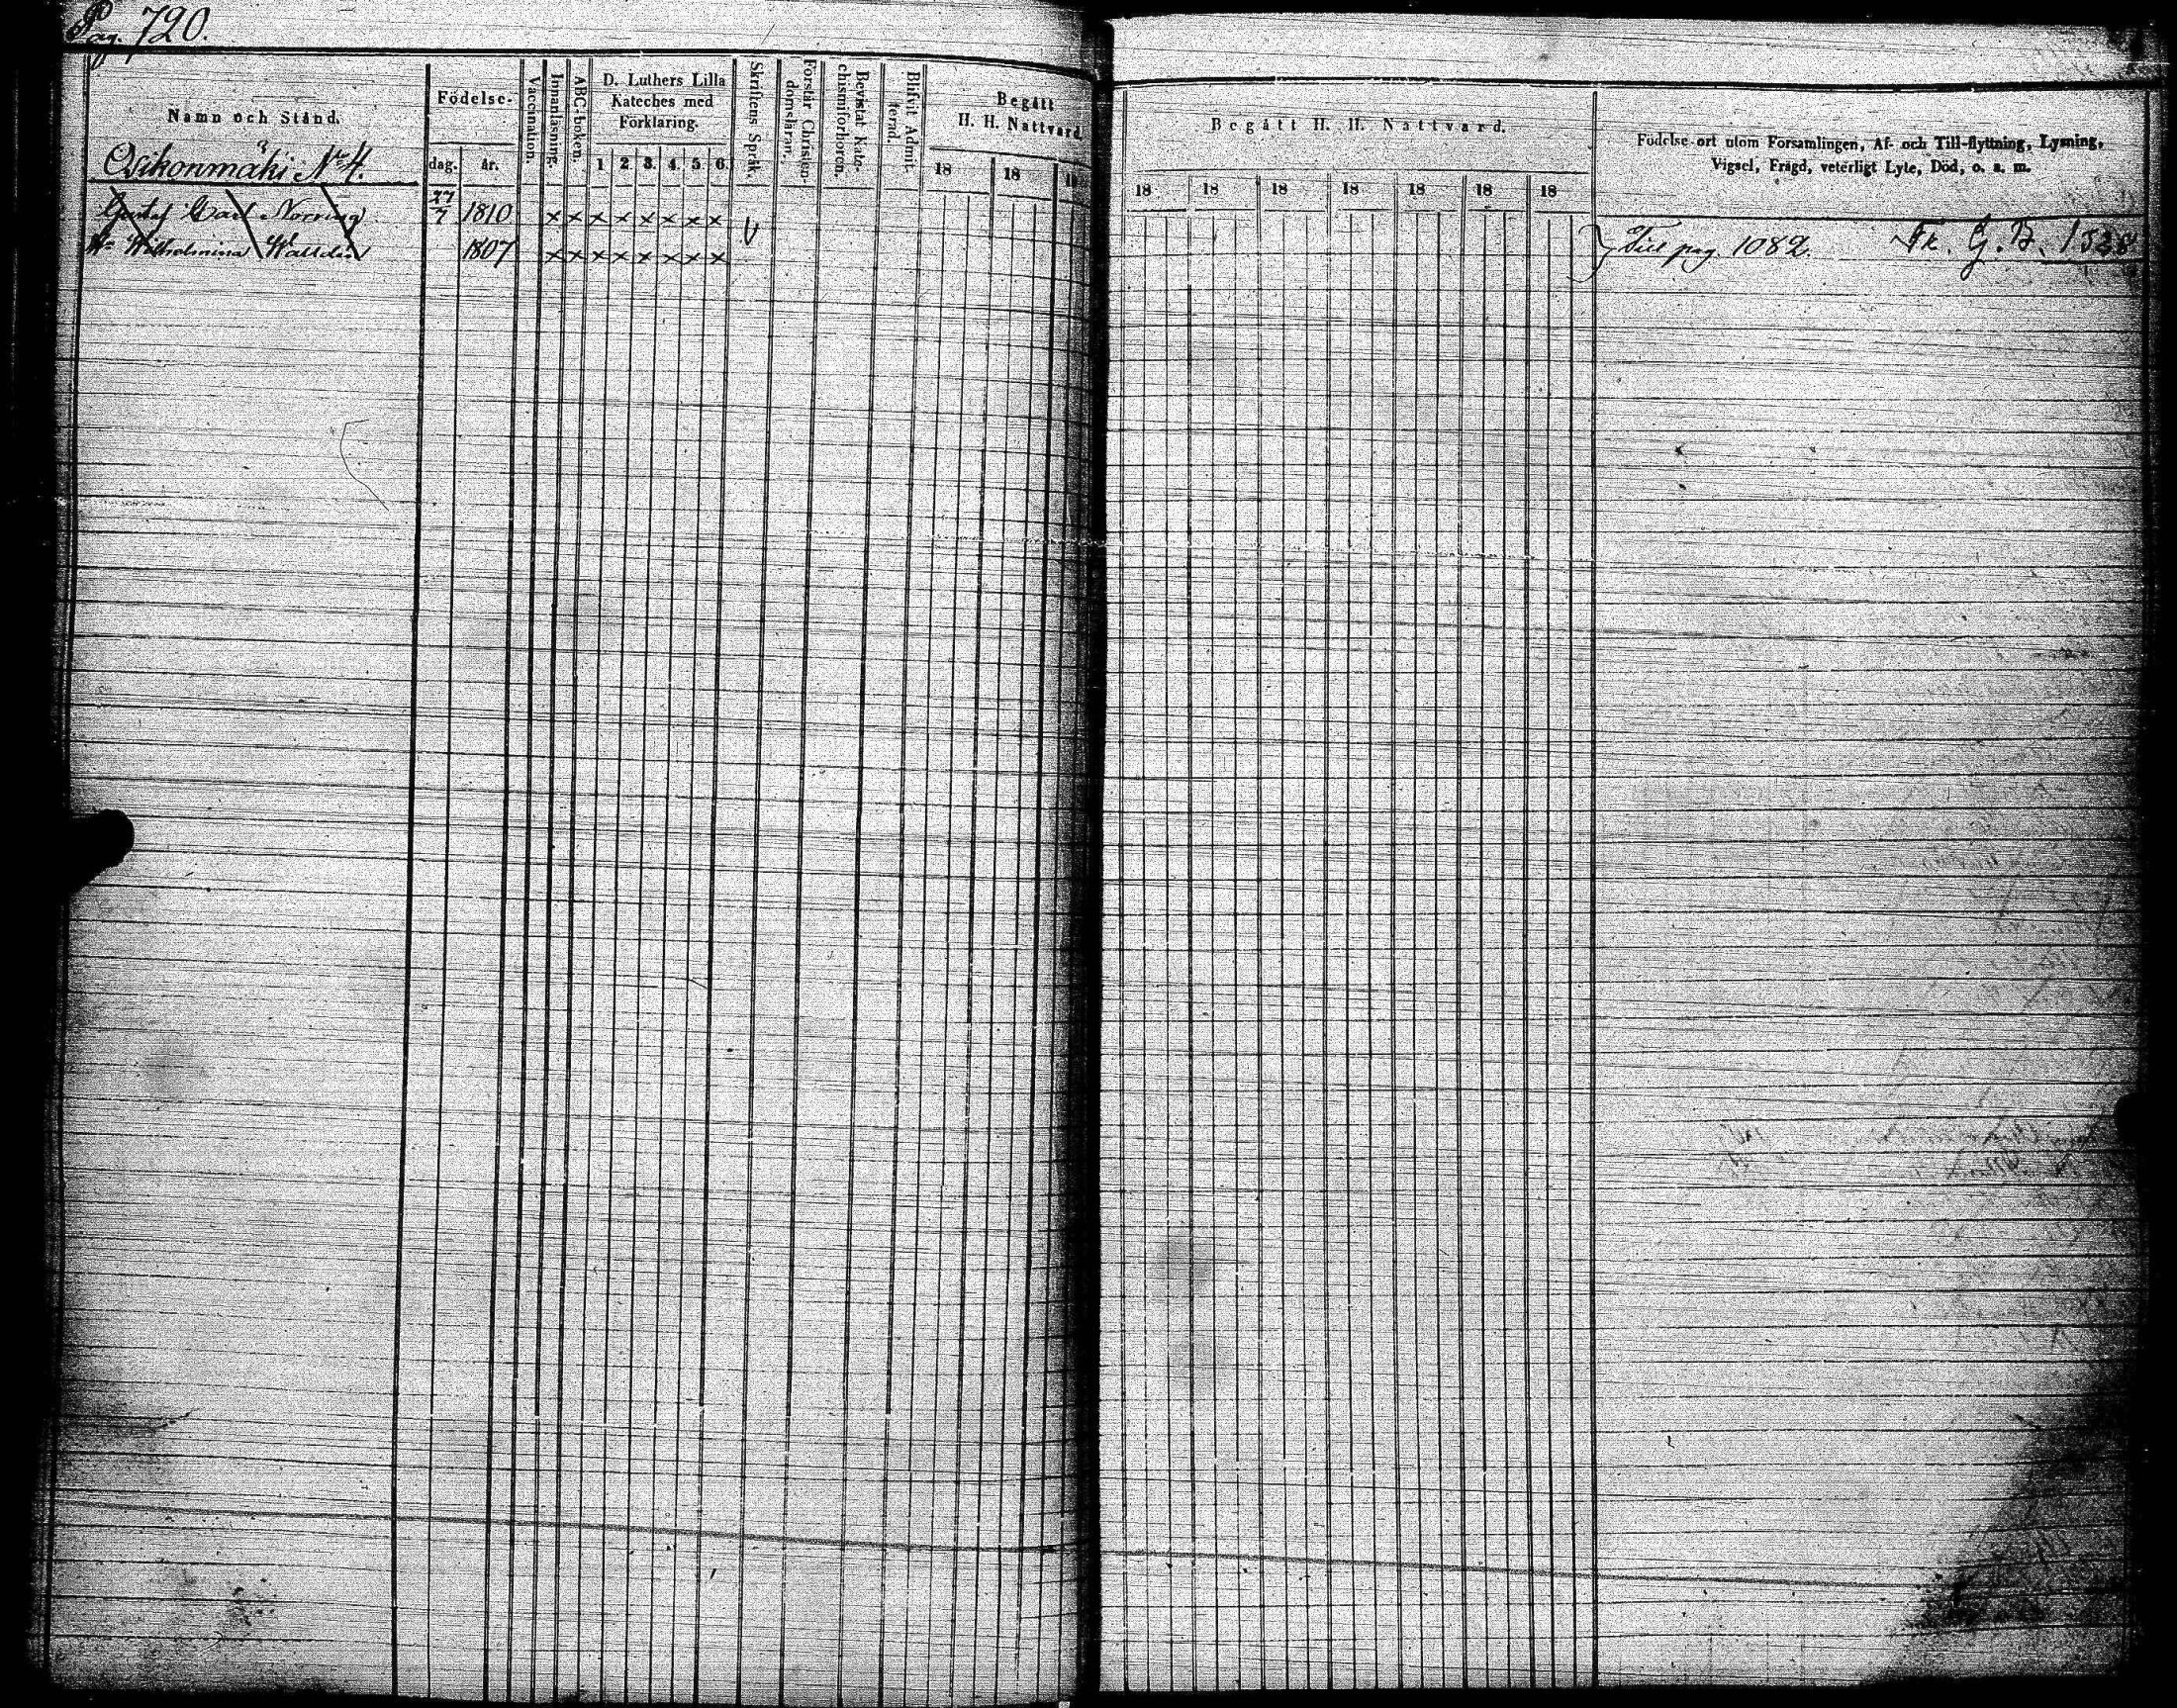 Pag. 720.
Namn och Stånd.
Födelse-
dag. år.
Vaccination.
Innanläsning.
ABC-boken.
D. Luthers Lilla
Kateches med
Förklaring.
1 2 3. 4. 5. 6.
Skriftens Språk.
Förstår Christen-
domsläran.
Bevistat Kate-
chismiförhören.
Blifvit Admit-
terad.
Begått
H. H. Nattvard.
18 18 18
Begått H. H. Nattvard.
18 18 18 18 18 18 18
Födelse-ort utom Församlingen, Af- och Till-flyttning, Lysning,
Vigsel, Frägd, veterligt Lyte, Död, o. s. m.
Osikonmäki No 4.
Gustaf Carl Norring 27/7 1810 x x x x x x x x
Hu Wilhelmina Walldén 1807 x x x x x x x x
Till pag. 1082. Fk. G. B. 1528